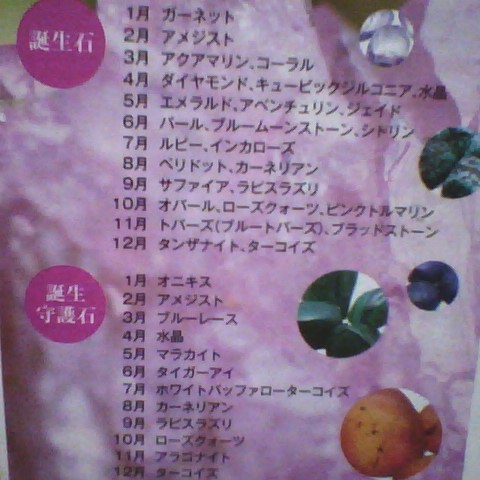 誕生石
1月 ガーネット
2月 アメジスト
3月 アクアマリン、コーラル
4月 ダイヤモンド、キュービックジルコニア、水晶
5月 エメラルド、アベンチュリン、ジェイド
6月 パール、ブルームーンストーン、シトリン
7月 ルビー、インカローズ
8月 ペリドット、カーネリアン
9月 サファイア、ラピスラズリ
10月 オパール、ローズクォーツ、ピンクトルマリン
11月 トパーズ(ブルートパーズ)、ブラッドストーン
12月 タンザナイト、ターコイズ
誕生
守護石
1月 オニキス
2月 アメジスト
3月 ブルーレース
4月 水晶
5月 マラカイト
6月 タイガーアイ
7月 ホワイトバッファローターコイズ
8月 カーネリアン
9月 ラピスラズリ
10月 ローズクォーツ
11月 アラゴナイト
12月 ターコイズ